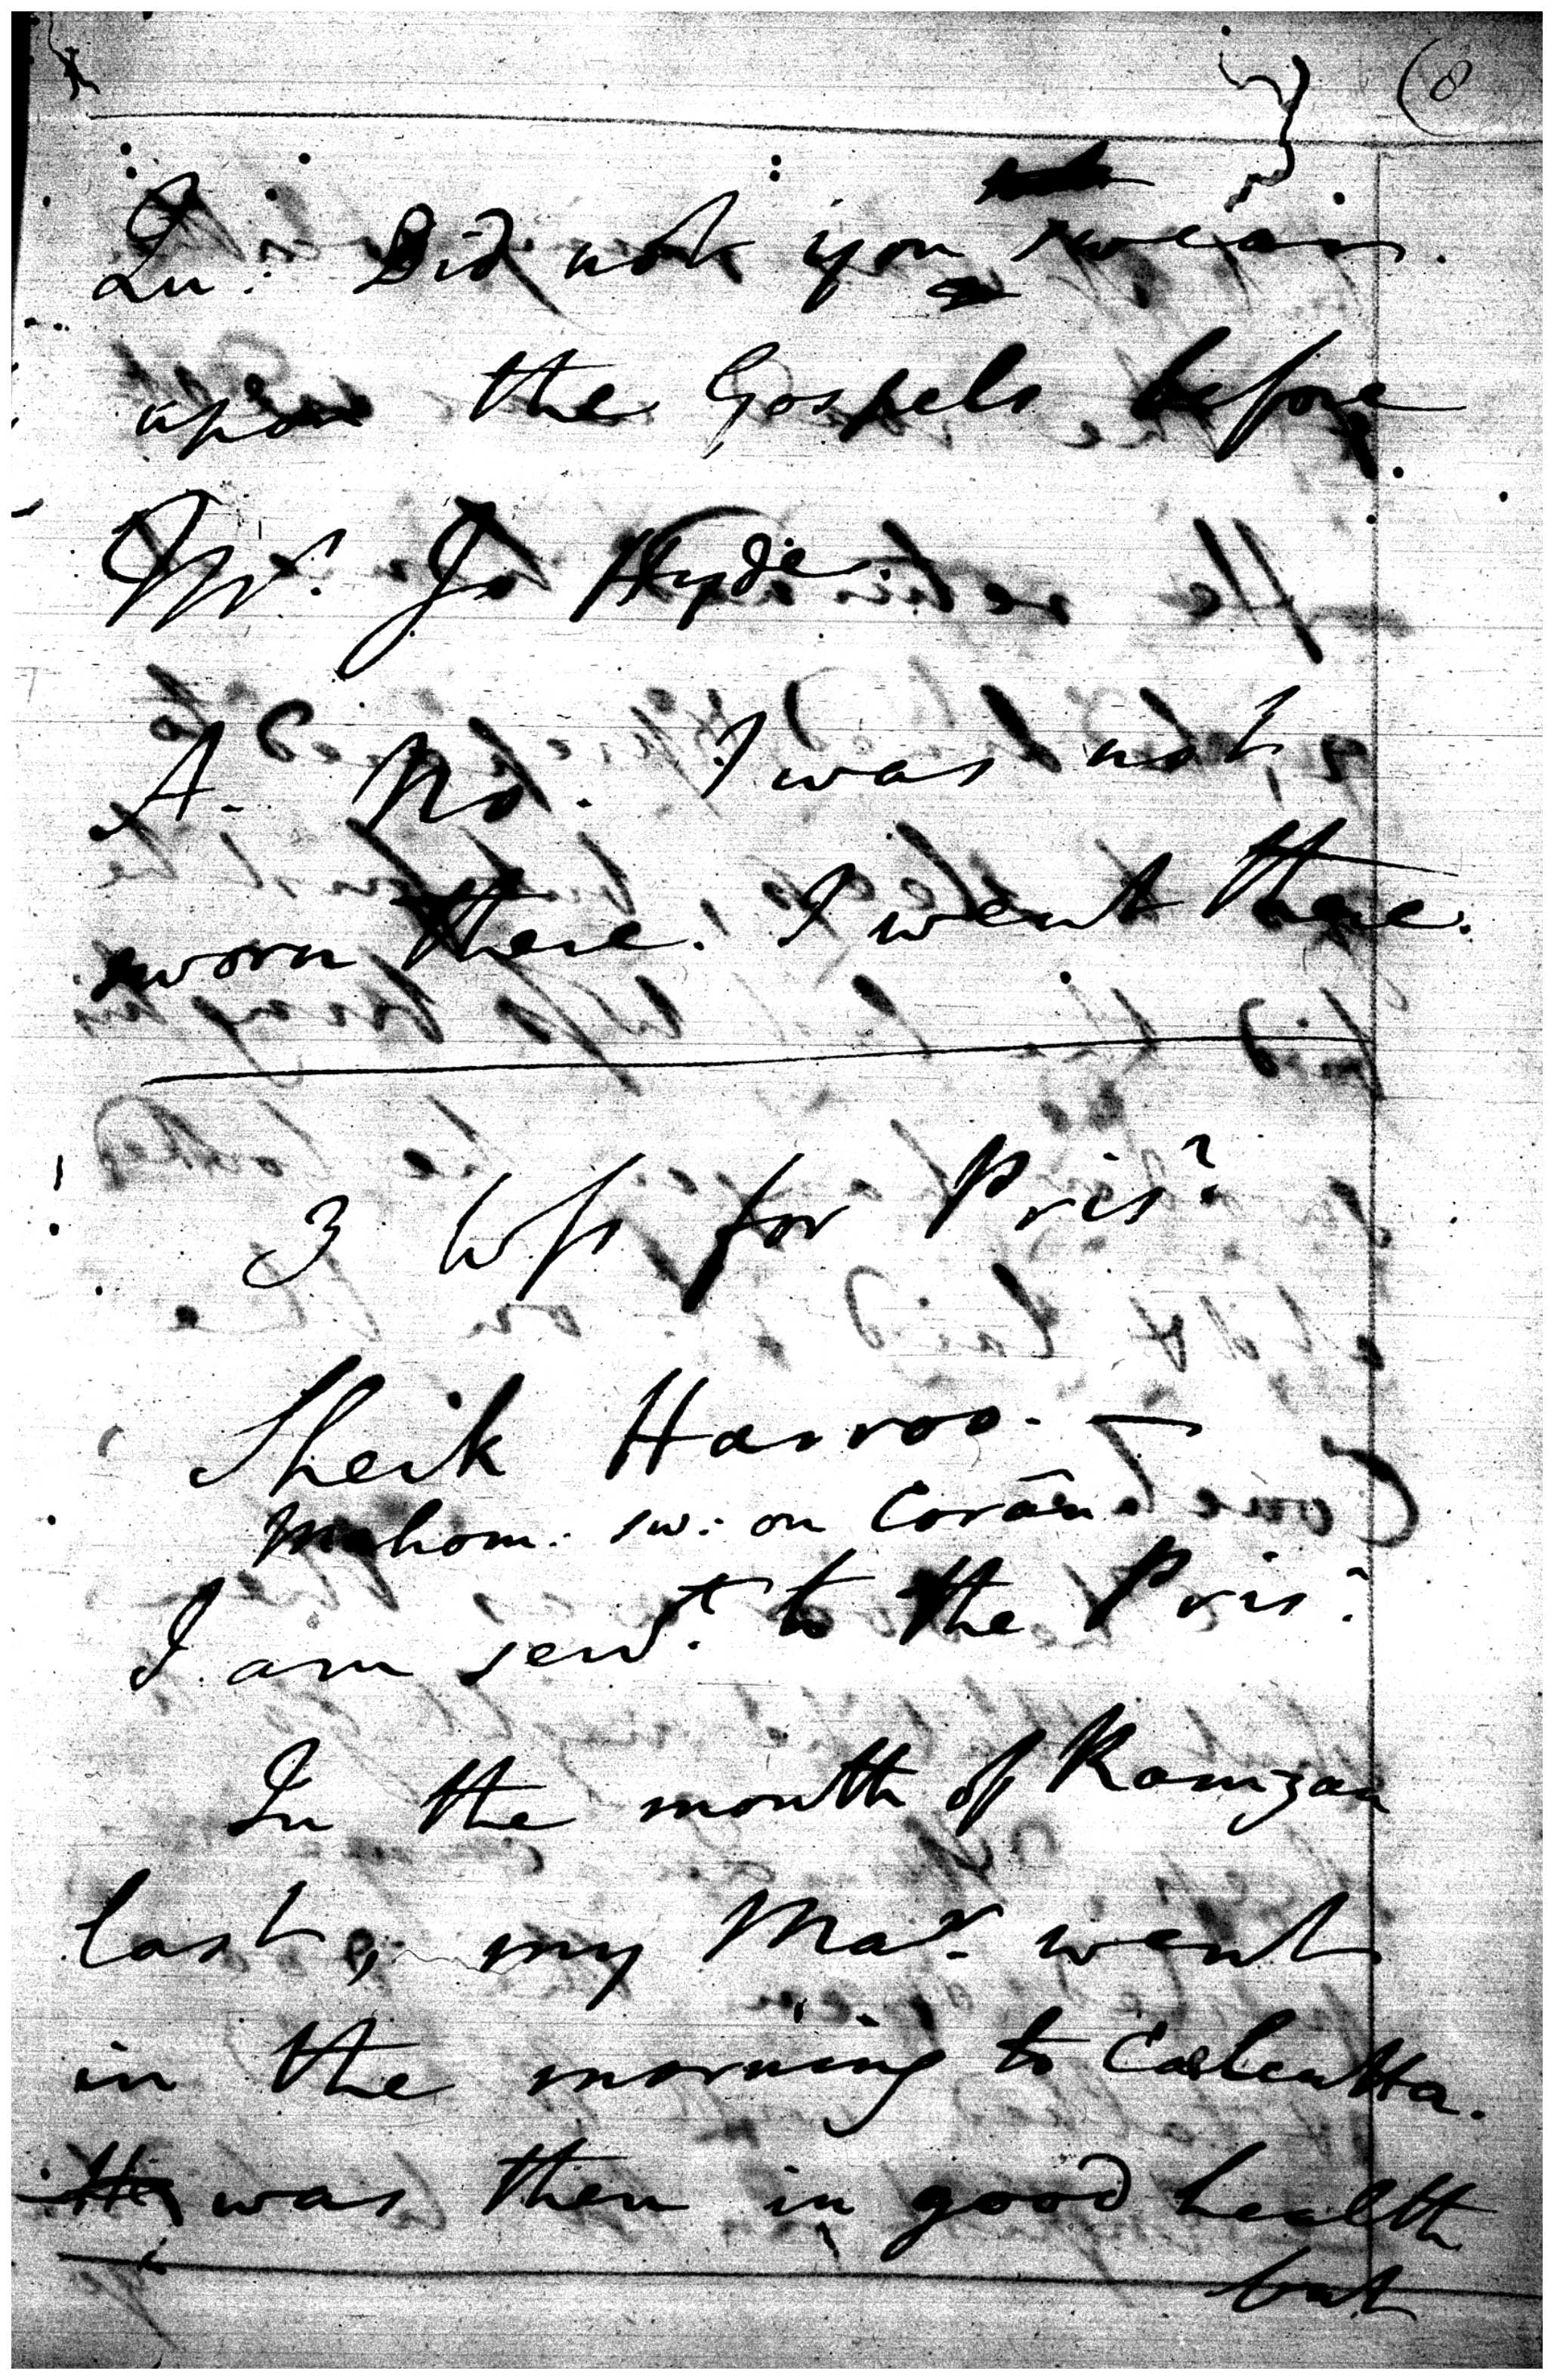 (8
Qu: Did not you swear
upon the Gospels before
Mr. Js Hyde.
A. No. I was not
sworn there. I went there.
3 Wss for Prisr
Sheik Harroo. —
Mahom. sw: on Corān
I am servt. to the Prisr
In the month of Ramzan
last, my Mar. went
in the morning to Calcutta.
He was then in good health
but